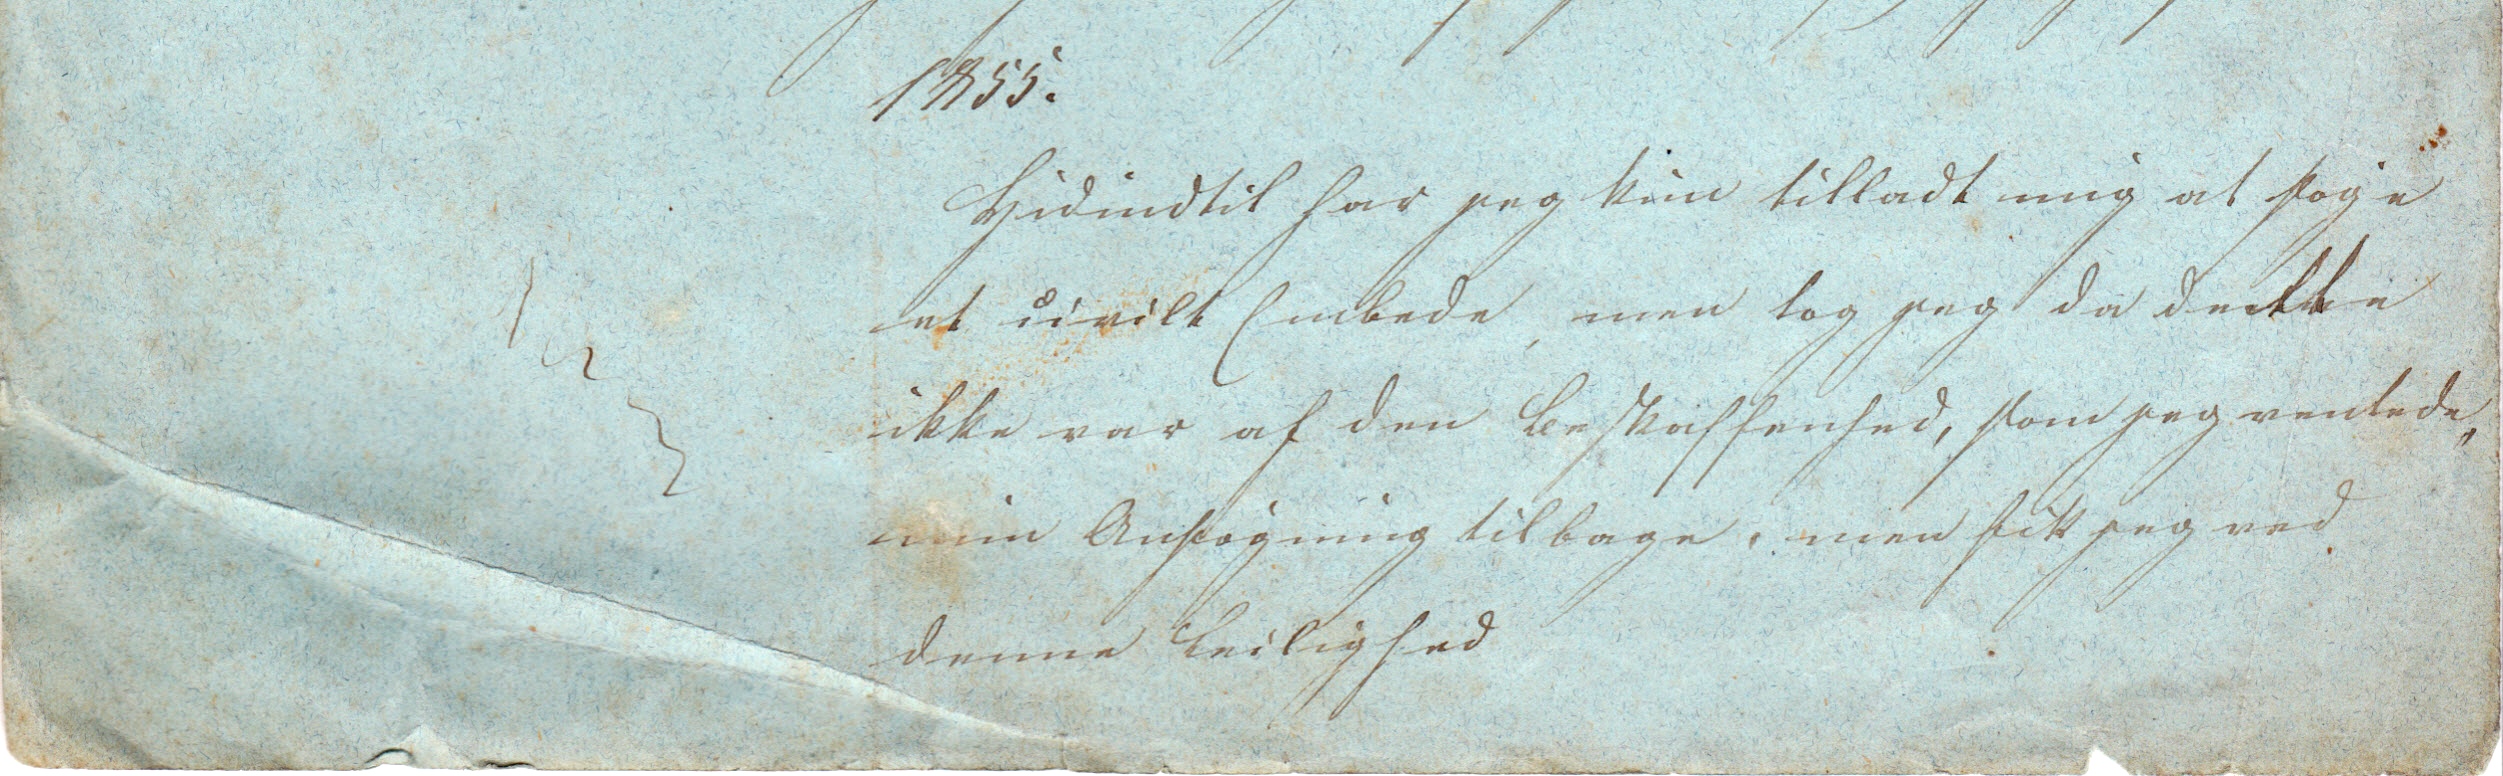 1855.
Hidindtil har jeg kun tilladt mig at søge
et civilt Embede, men tog jeg da dette
ikke var af den Beskaffenhed, som jeg ventede,
min Ansøgning tilbage, men fik jeg ved
denne Leilighed